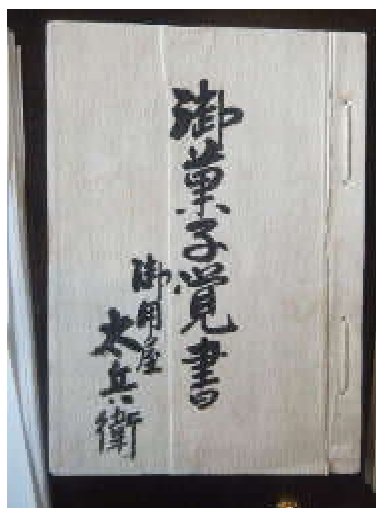 御菓子覚書
御用屋
太兵衛